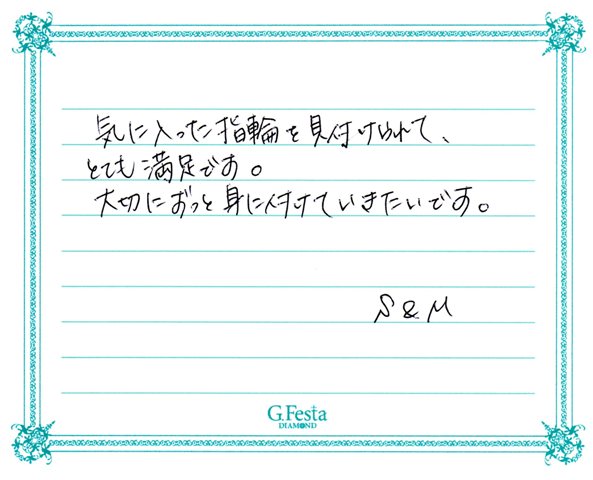 気に入った指輪を見付けられて、
とても満足です。
大切にずっと身に付けていきたいです。
S & M
G.Festa
DIAMOND